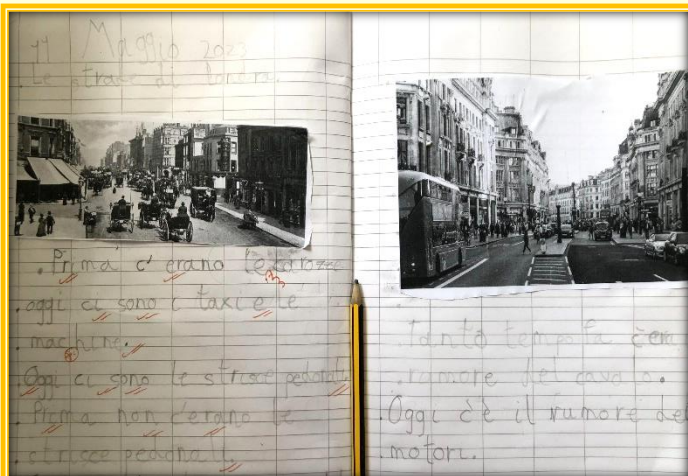 11 Maggio 2023
Le strade di Londra.
Prima c'erano le carozze
oggi ci sono i taxi e le
macchine.
Oggi ci sono le strisce pedonali
Prima non c'erano le
striscce pedonali.
Tanto tempo fa c'era
rumore del cavalo.
Oggi c'è il rumore dei
motori.